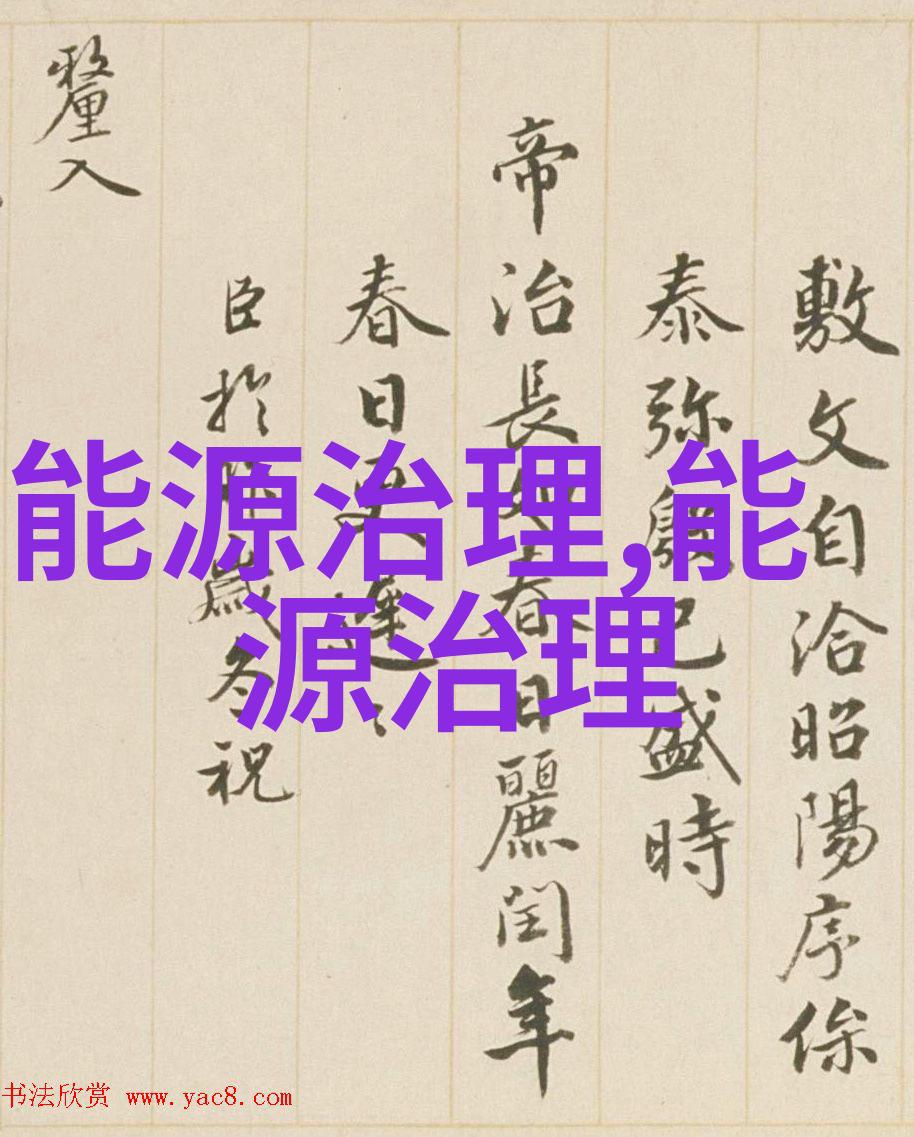 敷文自洽昭陽序
泰弥已盛時
帝治長春日麗閏年
春日更遲
臣於歲冬祝
釐入
能源治理,能
源治理
书法欣赏 www.yac8.com